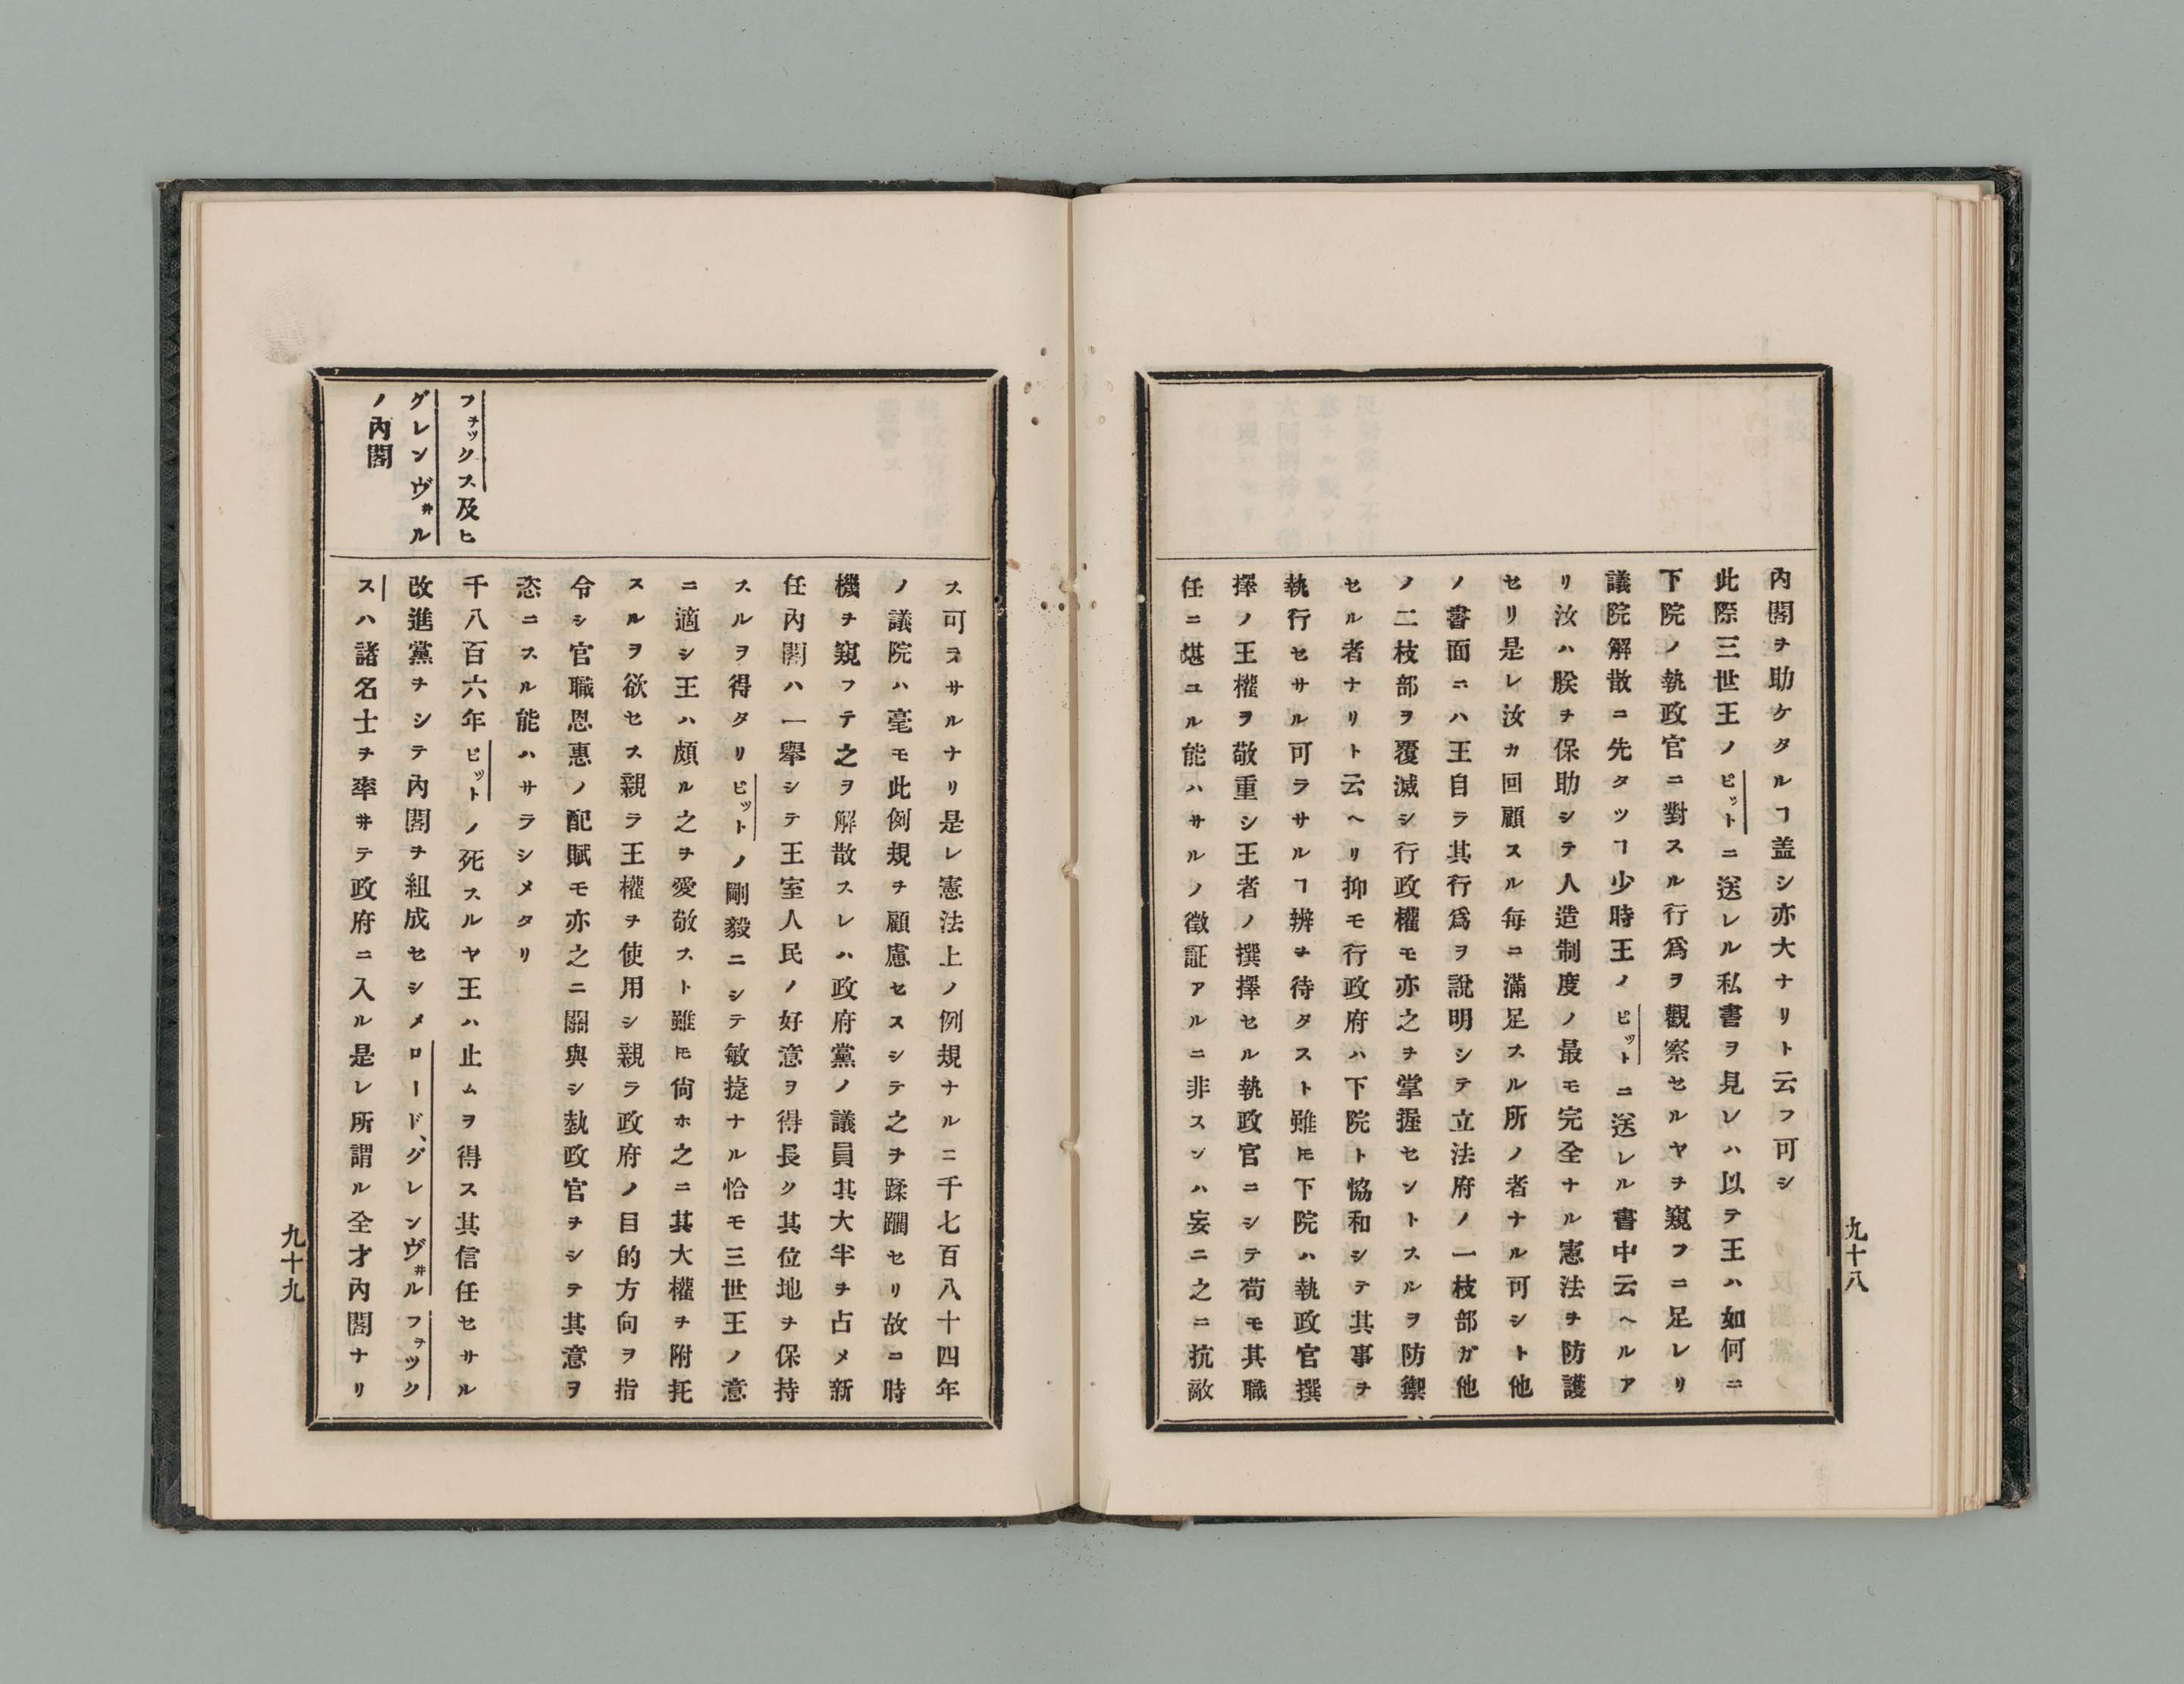 內閣ヲ助ケタルヿ盖シ亦大ナリト云フ可シ
此際三世王ノピットニ送レル私書ヲ見レハ以テ王ハ如何ニ
下院ノ執政官ニ對スル行爲ヲ觀察セルヤヲ窺フニ足レリ
議院解散ニ先タツヿ少時王ノピットニ送レル書中云ヘルア
リ汝ハ朕ヲ保助シテ人造制度ノ最モ完全ナル憲法ヲ防護
セリ是レ汝カ回顧スル每ニ滿足スル所ノ者ナル可シト他
ノ書面ニハ王自ラ其行爲ヲ說明シテ立法府ノ一枝部ガ他
ノ二枝部ヲ覆滅シ行政權モ亦之ヲ掌握セントスルヲ防禦
セル者ナリト云ヘリ抑モ行政府ハ下院ト恊和シテ其事ヲ
執行セサル可ラサルヿ辨ヲ待タスト雖𪜈下院ハ執政官撰
擇ノ王權ヲ敬重シ王者ノ撰擇セル執政官ニシテ苟モ其職
任ニ堪ユル能ハサルノ徵証アルニ非スンハ妄ニ之ニ抗敵
九十八
ス可ラサルナリ是レ憲法上ノ例規ナルニ千七百八十四年
ノ議院ハ毫モ此例規ヲ顧慮セスシテ之ヲ蹂躙セリ故ニ時
機ヲ窺フテ之ヲ解散スレハ政府黨ノ議員其大半ヲ占メ新
任內閣ハ一擧シテ王室人民ノ好意ヲ得長ク其位地ヲ保持
スルヲ得タリピットノ剛毅ニシテ敏捷ナル恰モ三世王ノ意
ニ適シ王ハ頗ル之ヲ愛敬スト雖𪜈尙ホ之ニ其大權ヲ附托
スルヲ欲セス親ラ王權ヲ使用シ親ラ政府ノ目的方向ヲ指
令シ官職恩惠ノ配賦モ亦之ニ關與シ執政官ヲシテ其意ヲ
恣ニスル能ハサラシメタリ
フヲックス及ヒ
グレンヴヰル
ノ內閣
千八百六年ピットノ死スルヤ王ハ止ムヲ得ス其信任セサル
改進黨ヲシテ內閣ヲ組成セシメロード、グレンヴヰルフヲック
スハ諸名士ヲ率ヰテ政府ニ入ル是レ所謂ル全才內閣ナリ
九十九